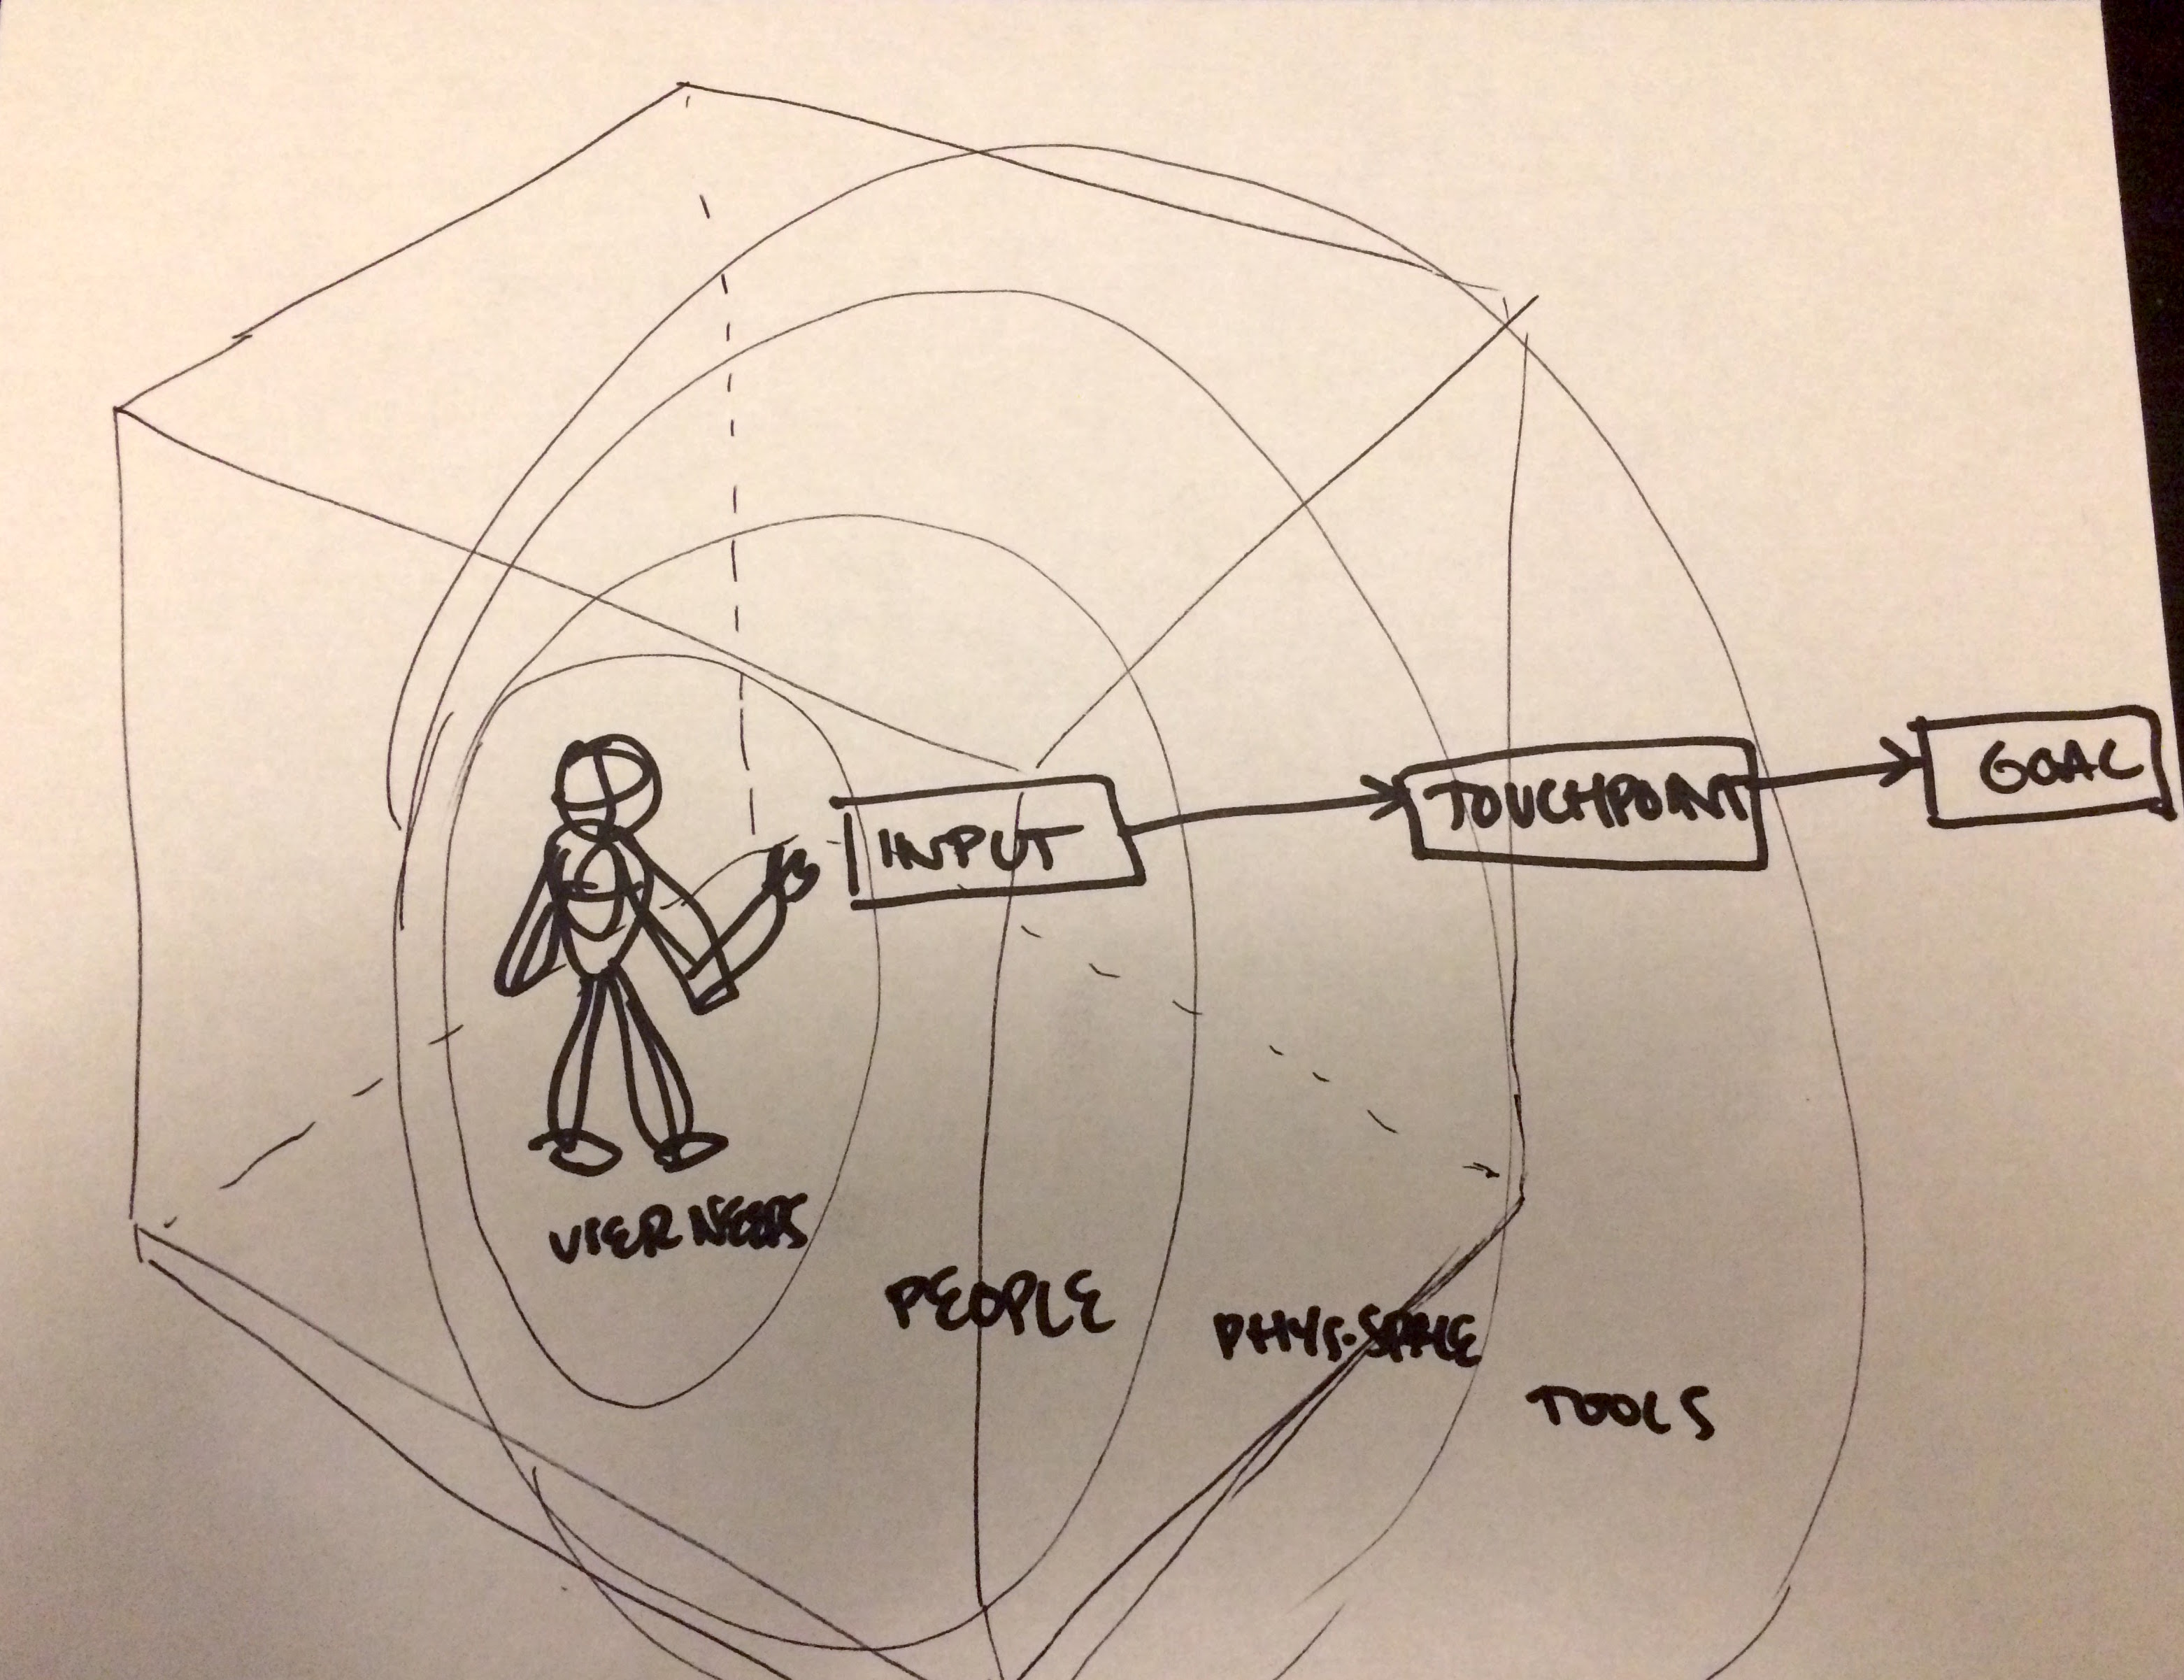 INPUT
TOUCHPOINT
GOAL
USER NEEDS
PEOPLE
PHYS. SPACE
TOOLS